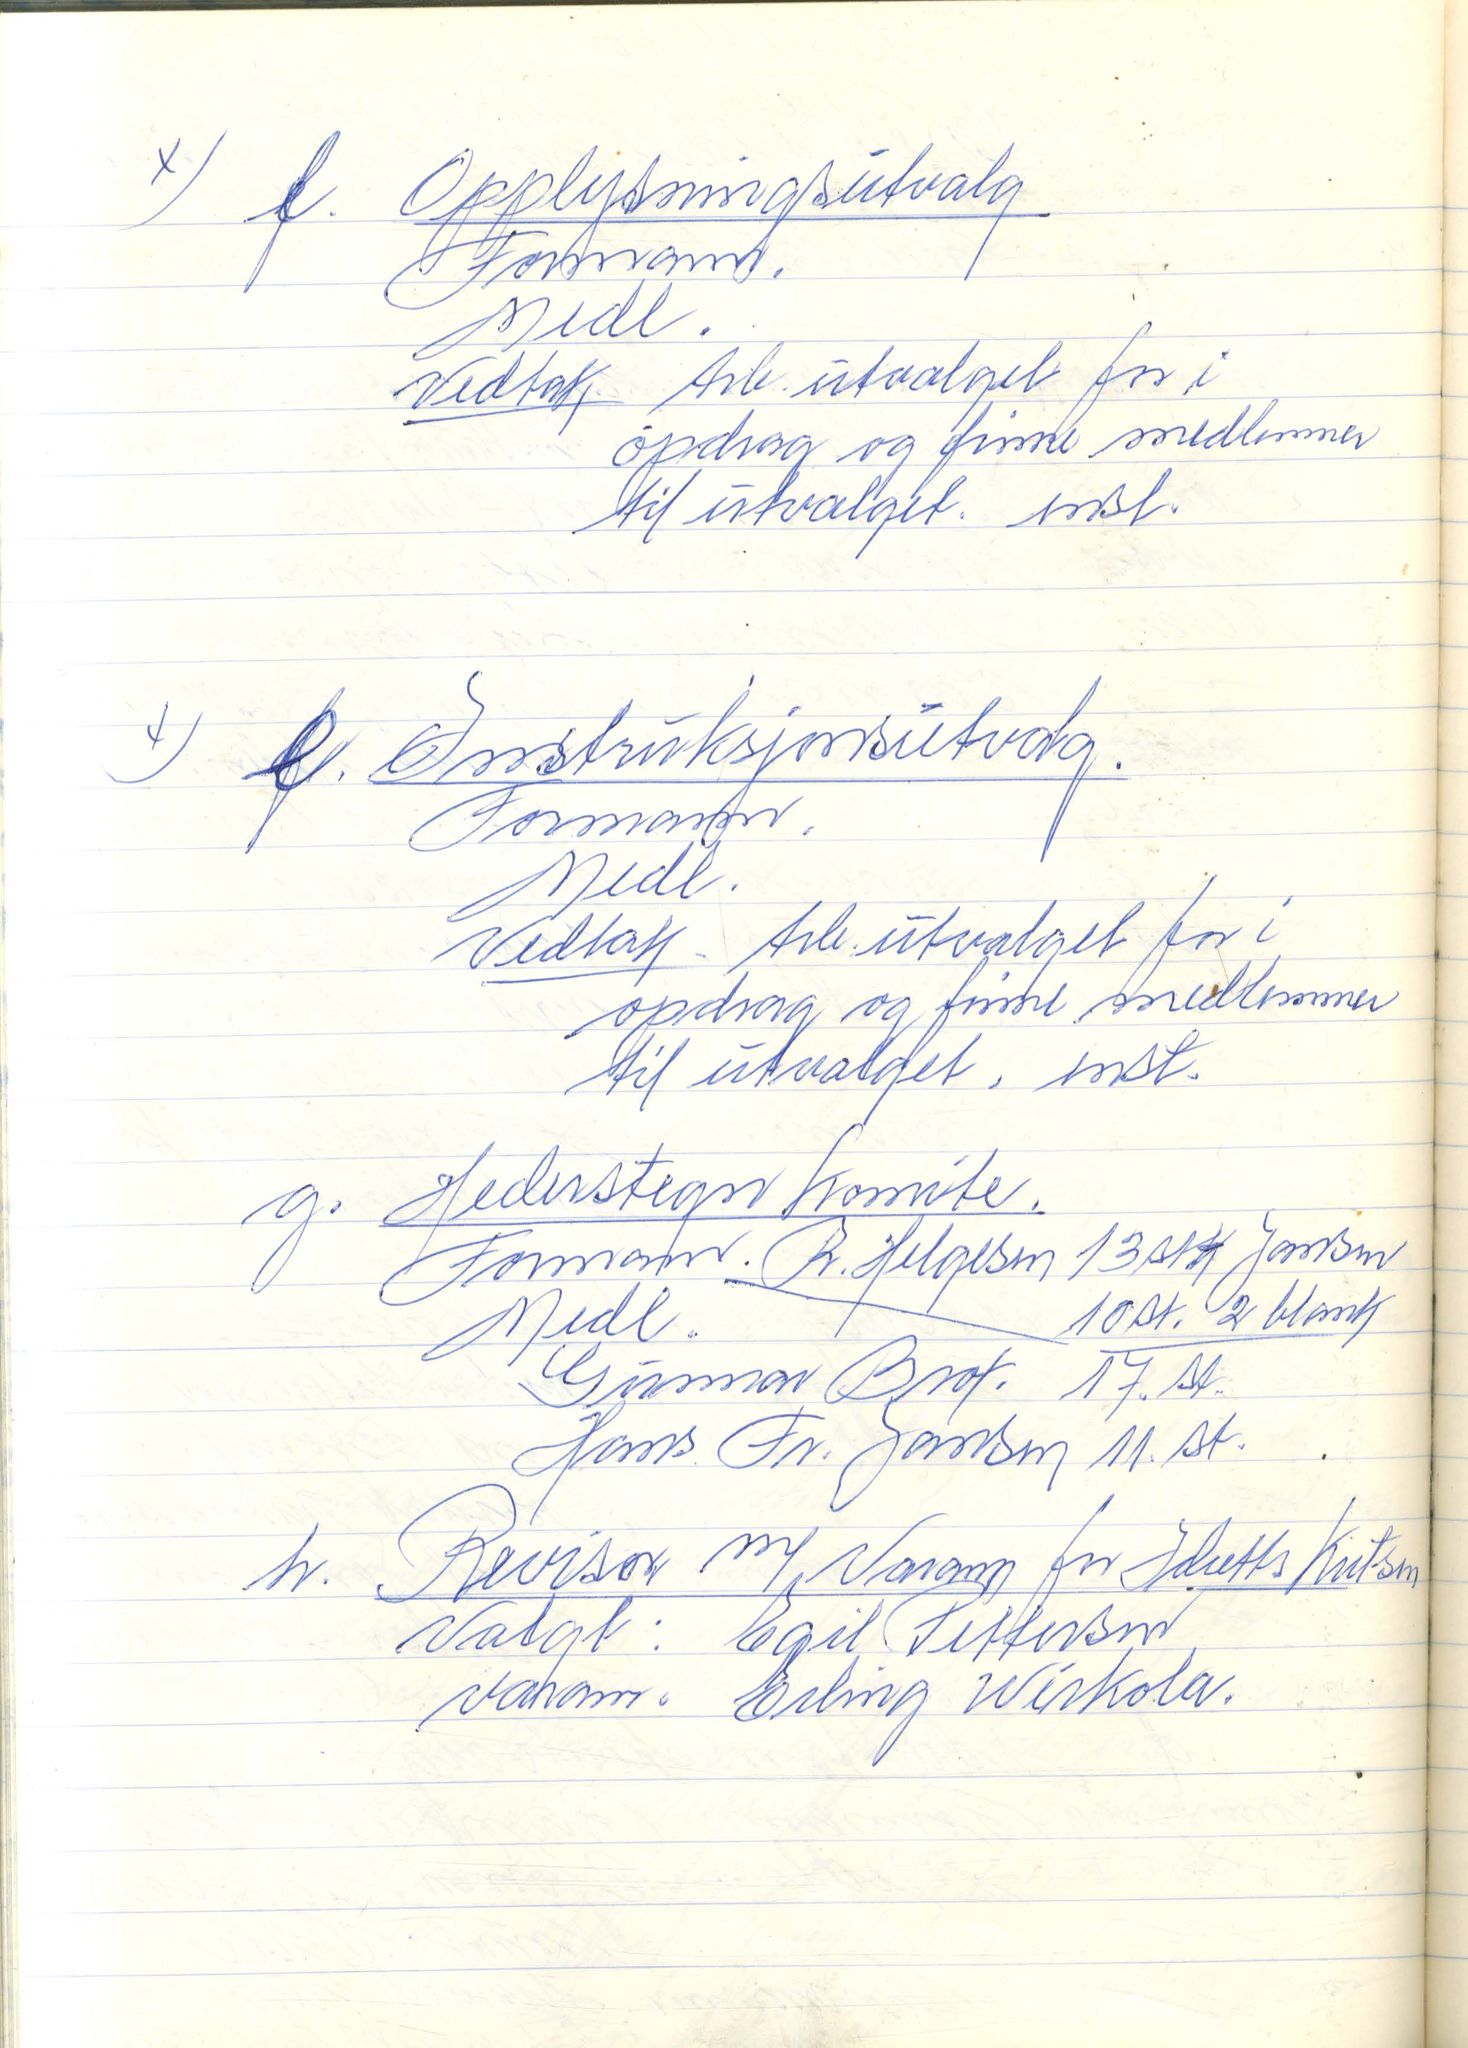 x) f. Opplysningsutvalg
Formann.
Medl.
Vedtak. Arb. utvalget får i
opdrag og finne medlemmer
til utvalget. enst.
x) f. Instruksjonsutvalg.
Formann.
Medl.
Vedtak. Arb. utvalget får i
opdrag og finne medlemmer
til utvalget. enst.
g. Hederstegn Komite.
Formann. R. Helgesen 13 st Jansen
Medl. 10 st. 2 blank
Gunnar Brot. 17. st.
Hans Fr. Jansen 11. st.
h. Revisor m/ Varam for Idretts
Valgt: Egil Pettersen
varam. Erling Wirkola.